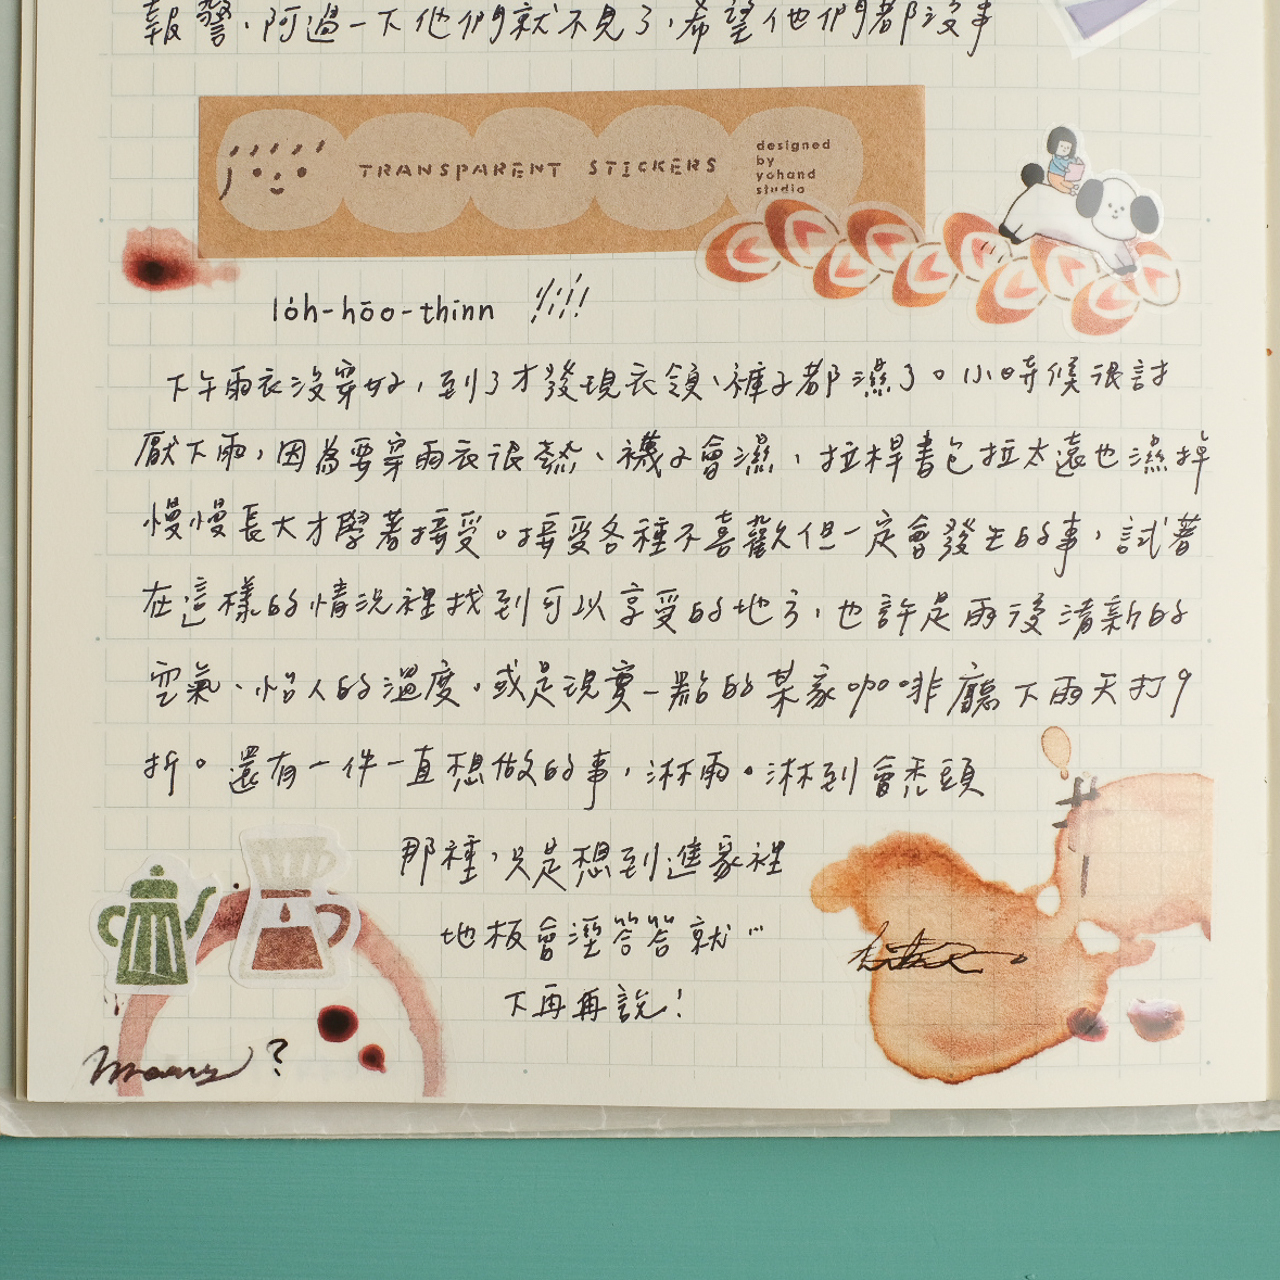 報警、阿過一下他們就不見了，希望他們都沒事
TRANSPARENT STICKERS
designed
by
yohand
studio
lo̍h-hōo-thinn !!!!
下午雨衣沒穿好，到了才發現衣領、褲子都濕了。小時候很討
厭下雨，因為要穿雨衣很熱、襪子會濕、拉桿書包拉太遠也濕掉
慢慢長大才學著接受。接受各種不喜歡但一定會發生的事，試著
在這樣的情況裡找到可以享受的地方，也許是雨後清新的
空氣、怡人的溫度，或是現實一點的某家咖啡廳下雨天打9
折。還有一件一直想做的事，淋雨。淋到會禿頭
那種，只是想到進家裡
地板會溼答答就…
下再再說！
?